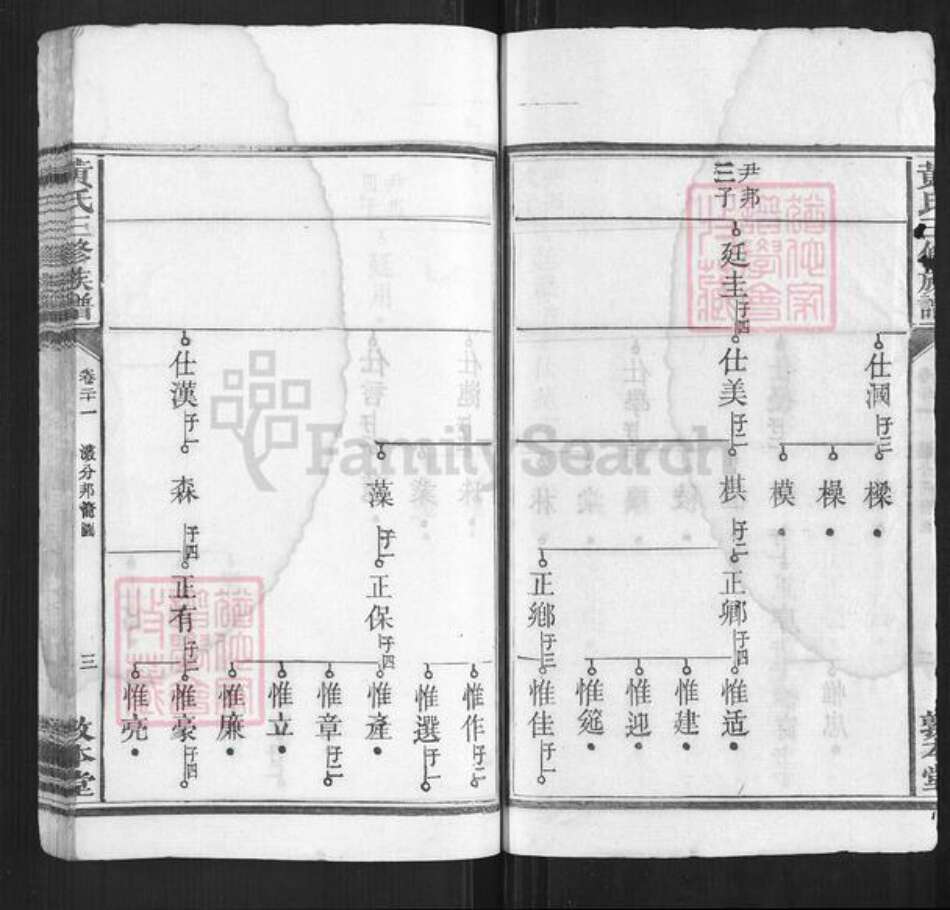 尹邦
三子
廷圭
子四
仕漍
子三
仕美
子二
樑
橾
模
棋
子二
正卿
子四
正鄉
子三
惟适
惟建
惟迎
惟筵
惟佳
子一
黃氏三修族譜
卷二十一
三
敦本堂
仕漢
子一
藻
子一
森
子四
正保
子四
正有
子二
惟作
子二
惟選
子一
惟產
惟章
子二
惟立
惟廉
惟豪
子四
惟亮
FamilySearch